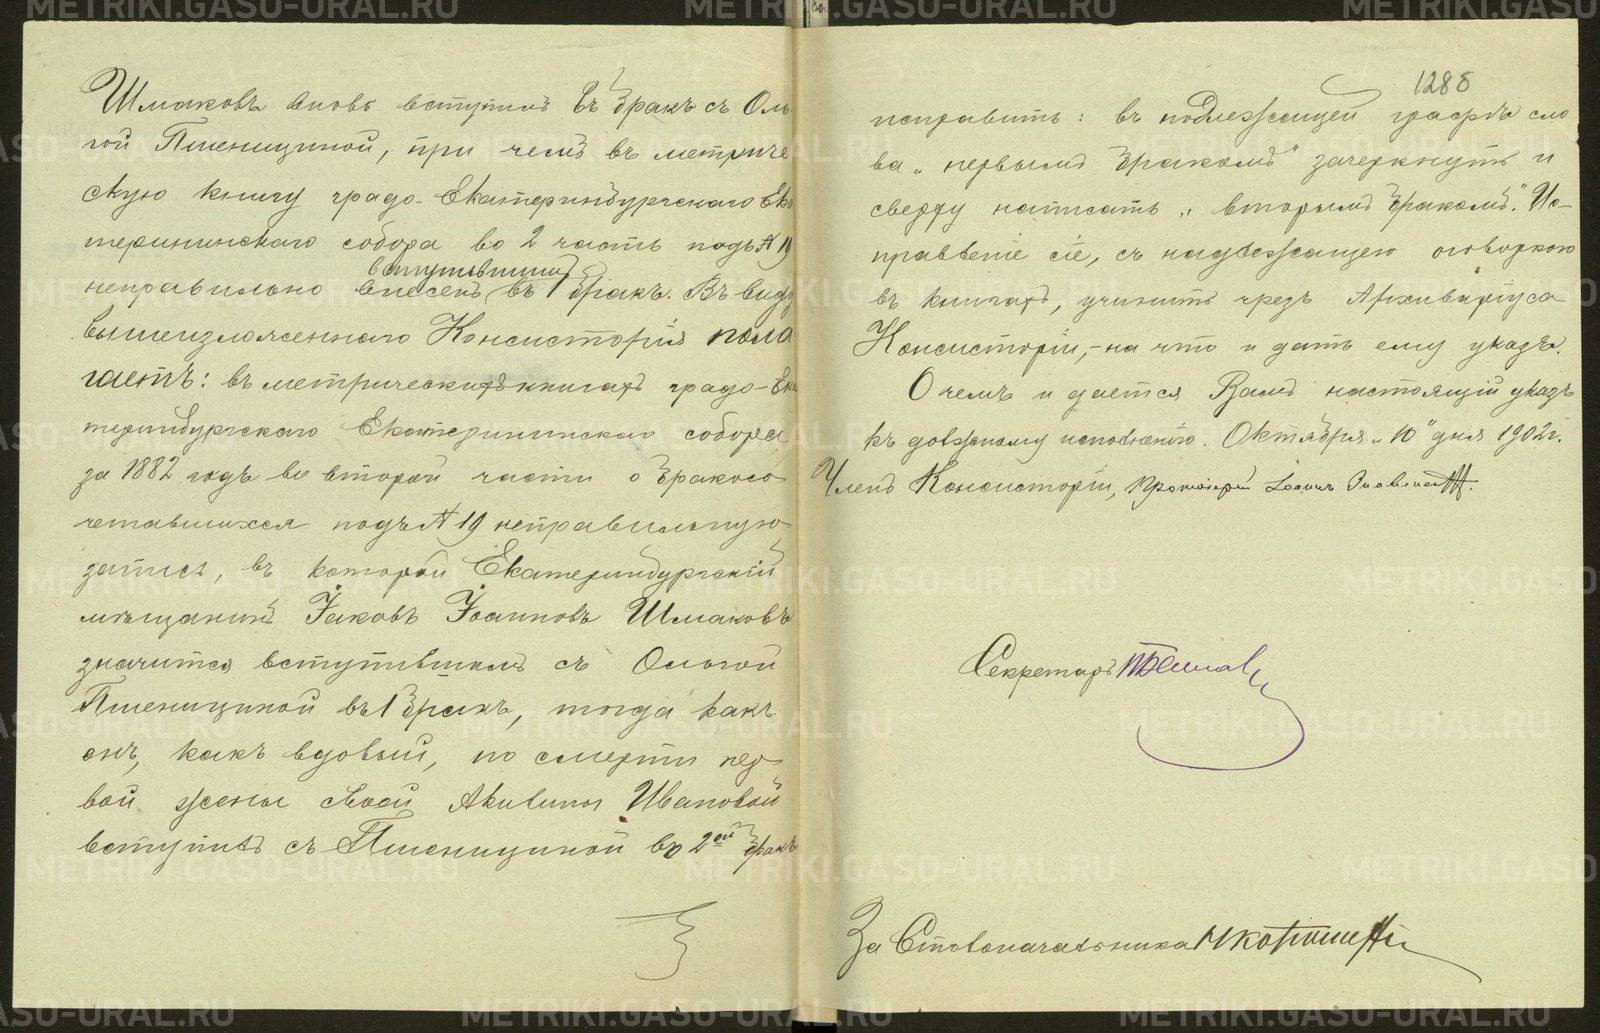 Шмаковъ вновь вступилъ въ бракъ съ Оль
гой Пшенициной, при чемъ въ метриче
скую книгу градо-Екатеринбургскаго Ека
терининскаго собора во 2 часть подъ № 19
вступившимъ
неправильно внесенъ въ 1 бракъ. Въ виду
вышеизложеннаго Консисторія пола
гаетъ: въ метрическихъ книгахъ градо-Ека
теринбургскаго Екатерининскаго собора
за 1882 годъ во второй части о бракосо
четавшихся подъ № 19 неправильную
запись, въ которой Екатеринбургскій
мѣщанинъ Іаковъ Іоанновъ Шмаковъ
значится вступившимъ съ Ольгой
Пшенициной въ 1 бракъ, тогда какъ
онъ, какъ вдовый, по смерти пер
вой жены своей Акилины Ивановой
вступилъ съ Пшенициной во 2ой бракъ
1285
исправить: въ подлежащей графѣ сло
ва „первымъ бракомъ" зачеркнуть и
сверху написать „вторымъ бракомъ". Ис-
правленіе сіе, съ надлежащею оговоркою
въ книгахъ, учинить чрезъ Архиваріуса
Консисторіи,-на что и дать ему указъ.
О чемъ и дается Вамъ настоящій указъ
къ должному исполненію. Октября „10" дня 1902 г.
Членъ Консисторіи, Протоіерей Іоаннъ
Секретарь
За Столоначальника
METRIKI.GASO-URAL.RU